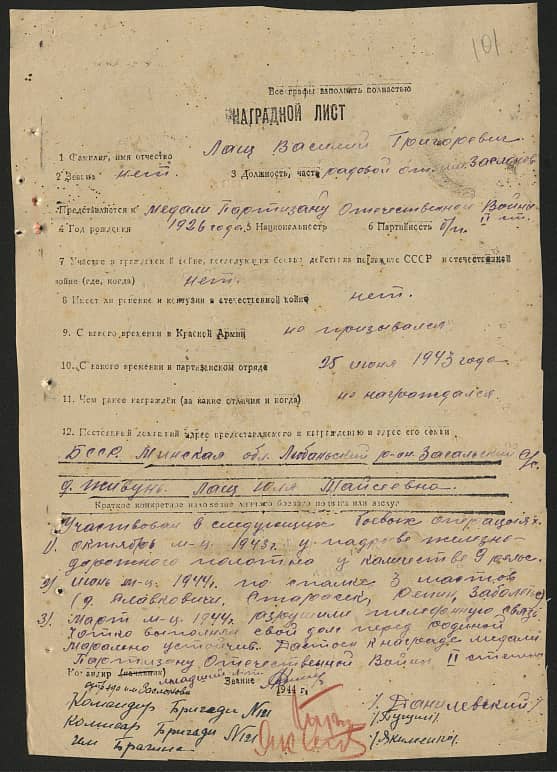 101
Все графы заполнить полностью
НАГРАДНОЙ ЛИСТ
1 Фамилия, имя отчество Лащ Василий Григоревич
2 Звание нет. 3 Должность, часть радовой от. им. Заслонов
Представляется к медали Партизану Отечественной Войны II ст.
4 Год рождения 1926 года 5 Национальность 6 Партийность б/п.
7 Участие в гражданской войне, последующих боевых действиях по защите СССР и отечественной
войне (где, когда) нет.
8 Имеет ли ранение и контузии в отечественной войне нет.
9. С какого времени в Красной Армии не призывался
10. С какого времени в партизанском отряде 25 июня 1943 года
11. Чем ранее награждён (за какие отличия и когда) не награждался.
12. Постоянный домашний адрес представляемого к награждению и адрес его семьи
БССР. Минская обл. Любаньский р-он. Загальский с/с
д. Живунь. Лащ Юля Майсеевна.
Краткое конкретное изложение личного боевого подвига или заслуг
Участвовал в следующих боевых операциях.
1/. октябрь м-ц. 1943 г. у падрыве железно-
дорожного полотна у количестве 9 рельс.
2/. июнь м-ц. 1944 г. по спалке 3 мостов
(д. Славковичи, Старосек,
3/. Март м-ц. 1944 г. разрушили телефонную связь.
Чотко выполнял свой долг перед Родиной
Марально устойчив. Достоин к награде медали
Партизану Отечественной Войны II степени
Командир (начальник)
Звание
1944 г.
Командир Бригады № 121
/. Данилевский /
комисар Бригады № 121
им Брагина.